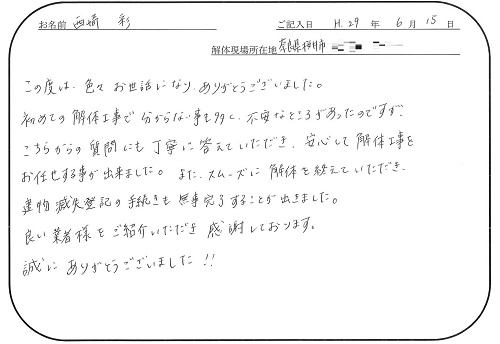 お名前 西崎 彩 ご記入日 H.29 年 6 月 15 日
解体現場所在地 奈良県桜井市
この度は、色々お世話になり、ありがとうございました。
初めての解体工事で分からない事も多く、不安なところがあったのですが、
こちらからの質問にも丁寧に答えていただき、安心して解体工事を
お任せする事が出来ました。また、スムーズに解体を終えていただき、
建物滅失登記の手続きも無事完了することが出きました。
良い業者様をご紹介いただき感謝しております。
誠にありがとうございました!!